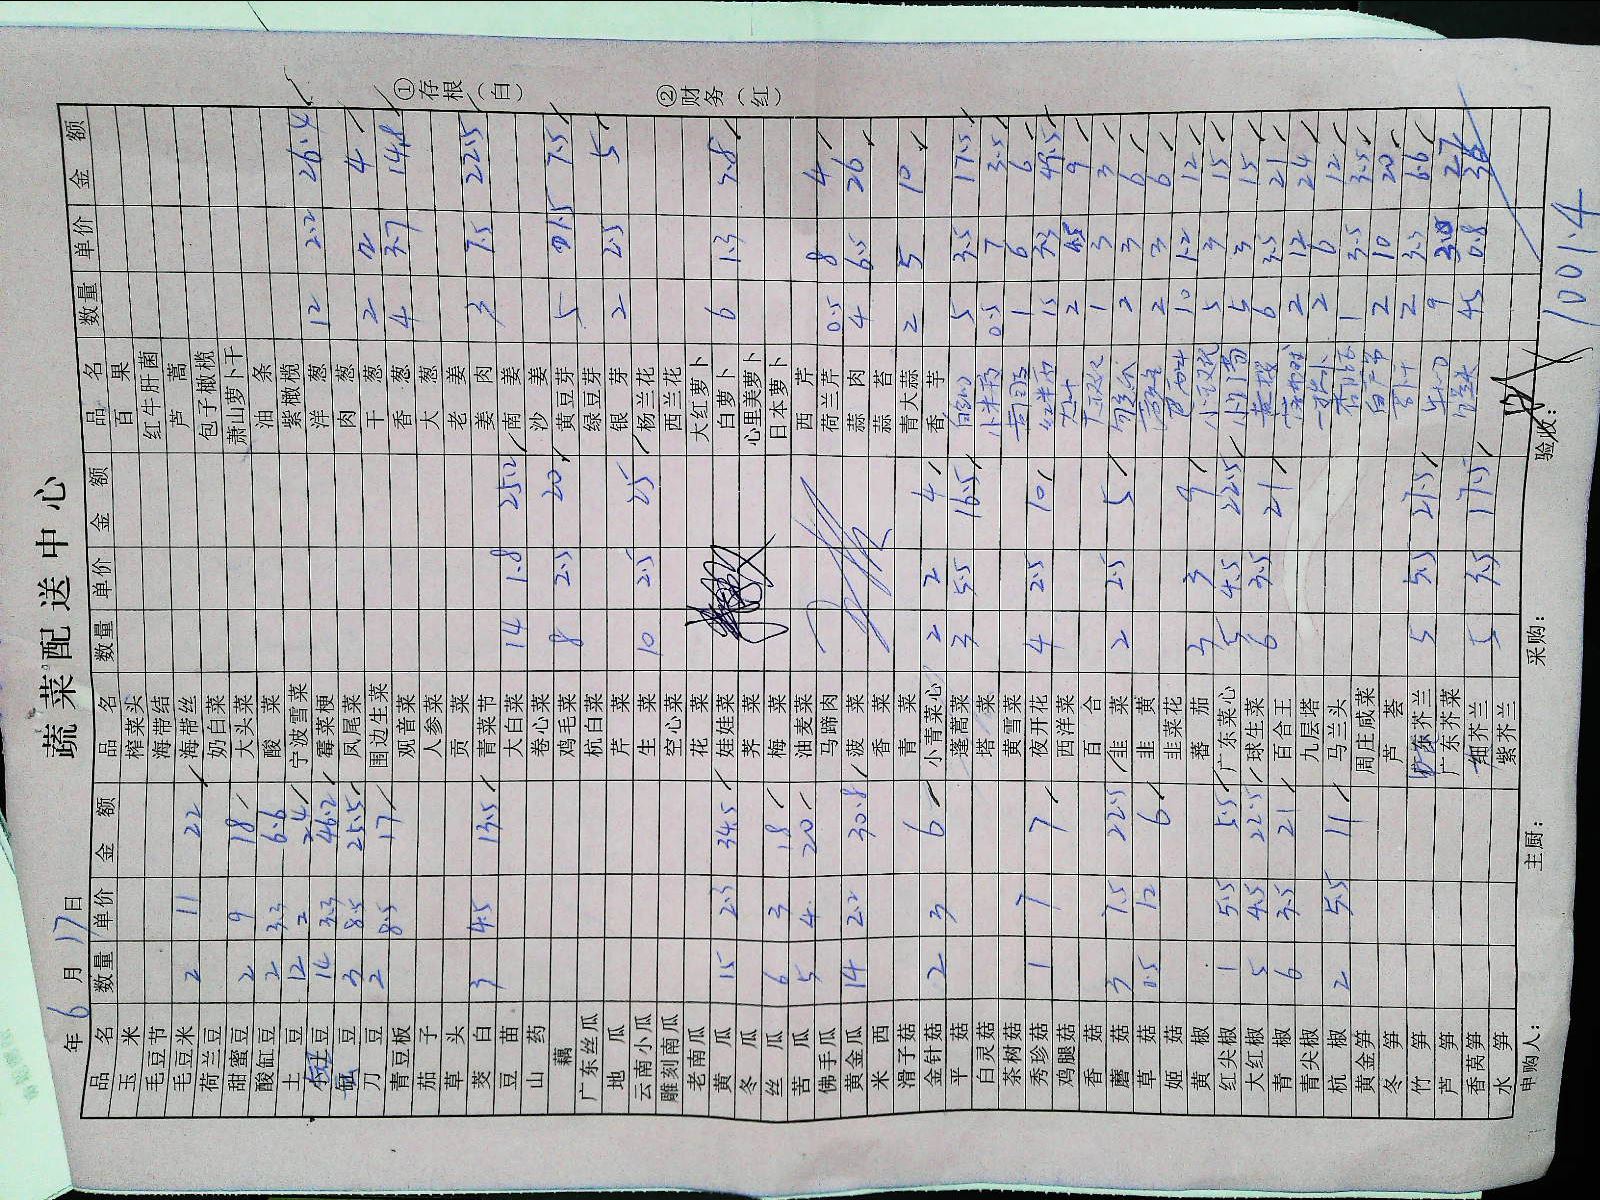 蔬菜配送中心
年 6 月 17 日
品名 数量 单价 金额 品名 数量 单价 金额 品名 数量 单价 金额
玉米 榨菜头 百果
毛豆节 海带结 红牛肝菌
毛豆米 2 11 22 海带丝 芦蒿
荷兰豆 奶白菜 包子橄榄
甜蜜豆 2 9 18 大头菜 萧山萝卜干
酸缸豆 2 3.3 6.6 酸菜 油条
土豆 12 2 24 宁波雪菜 紫橄榄
豆 14 3.3 46.2 霉菜梗 洋葱 12 2.2 26.4
豆 3 8.5 25.5 凤尾菜 肉葱
刀豆 2 8.5 17 围边生菜 干葱 2 2 4
青豆板 观音菜 香葱 4 3.7 14.8
茄子 人参菜 大葱
草头 贡菜 老姜
茭白 3 4.5 13.5 青菜节 姜肉 3 7.5 22.5
豆苗 大白菜 14 1.8 25.2 南姜
山药 卷心菜 沙姜
藕 鸡毛菜 8 2.5 20 黄豆芽 5 1.5 7.5
广东丝瓜 杭白菜 绿豆芽
地瓜 芹菜 银芽 2 2.5 5
云南小瓜 生菜 10 2.5 25 杨兰花
雕刻南瓜 空心菜 西兰花
老南瓜 花菜 大红萝卜
黄瓜 15 2.3 34.5 娃娃菜 白萝卜 6 1.3 7.8
冬瓜 荠菜 心里美萝卜
丝瓜 6 3 18 梅菜 日本萝卜
苦瓜 5 4 20 油麦菜 西芹
佛手瓜 马蹄肉 荷兰芹 0.5 8 4
黄金瓜 14 2.2 30.8 菠菜 蒜肉 4 6.5 26
米西 香菜 蒜苔
滑子菇 青菜 青大蒜 2 5 10
金针菇 2 3 6 小菁菜心 2 2 4 香芋
平菇 蓬蒿菜 3 5.5 16.5 5 3.5 17.5
白灵菇 塔菜 小米椒 0.5 7 3.5
茶树菇 黄雪菜 1 6 6
秀珍菇 1 7 7 夜开花 4 2.5 10 15 3.3 49.5
鸡腿菇 西洋菜 2 4.5 9
香菇 百合 1 3 3
蘑菇 3 7.5 22.5 韭菜 2 2.5 5 2 3 6
草菇 0.5 12 6 韭黄 2 3 6
姬菇 韭菜花 10 1.2 12
黄椒 番茄 3 3 9 5 3 15
红尖椒 1 5.5 5.5 广东菜心 5 4.5 22.5 5 3 15
大红椒 5 4.5 22.5 球生菜 6 3.5 21 6 3.5 21
青椒 6 3.5 21 百合王 2 12 24
青尖椒 九层塔 2 6 12
杭椒 2 5.5 11 马兰头 1 3.5 3.5
黄金笋 周庄咸菜 2 10 20
冬笋 芦荟 2 3.3 6.6
竹笋 芥兰 5 5.5 27.5 9 3.0 27
芦笋 广东芥菜 45 0.8 36
香莴笋 细芥兰 5 3.5 17.5
水笋 紫芥兰
申购人: 主厨: 采购: 验收:
1001.4
①存根(白)
②财务(红)